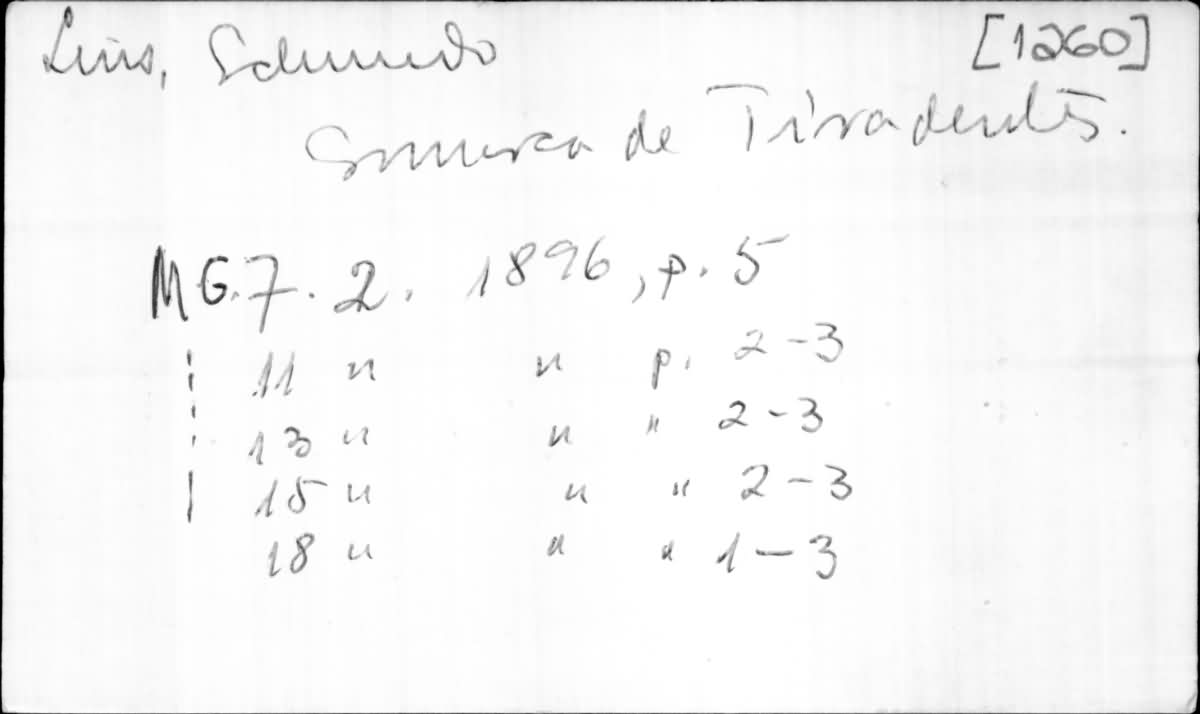 Luis, Edmundo [1260]
Comarca de Tiradentes.
MG. 7. 2. 1896, p. 5
11 " " p. 2-3
13 " " " 2-3
15 " " " 2-3
18 " " " 1-3